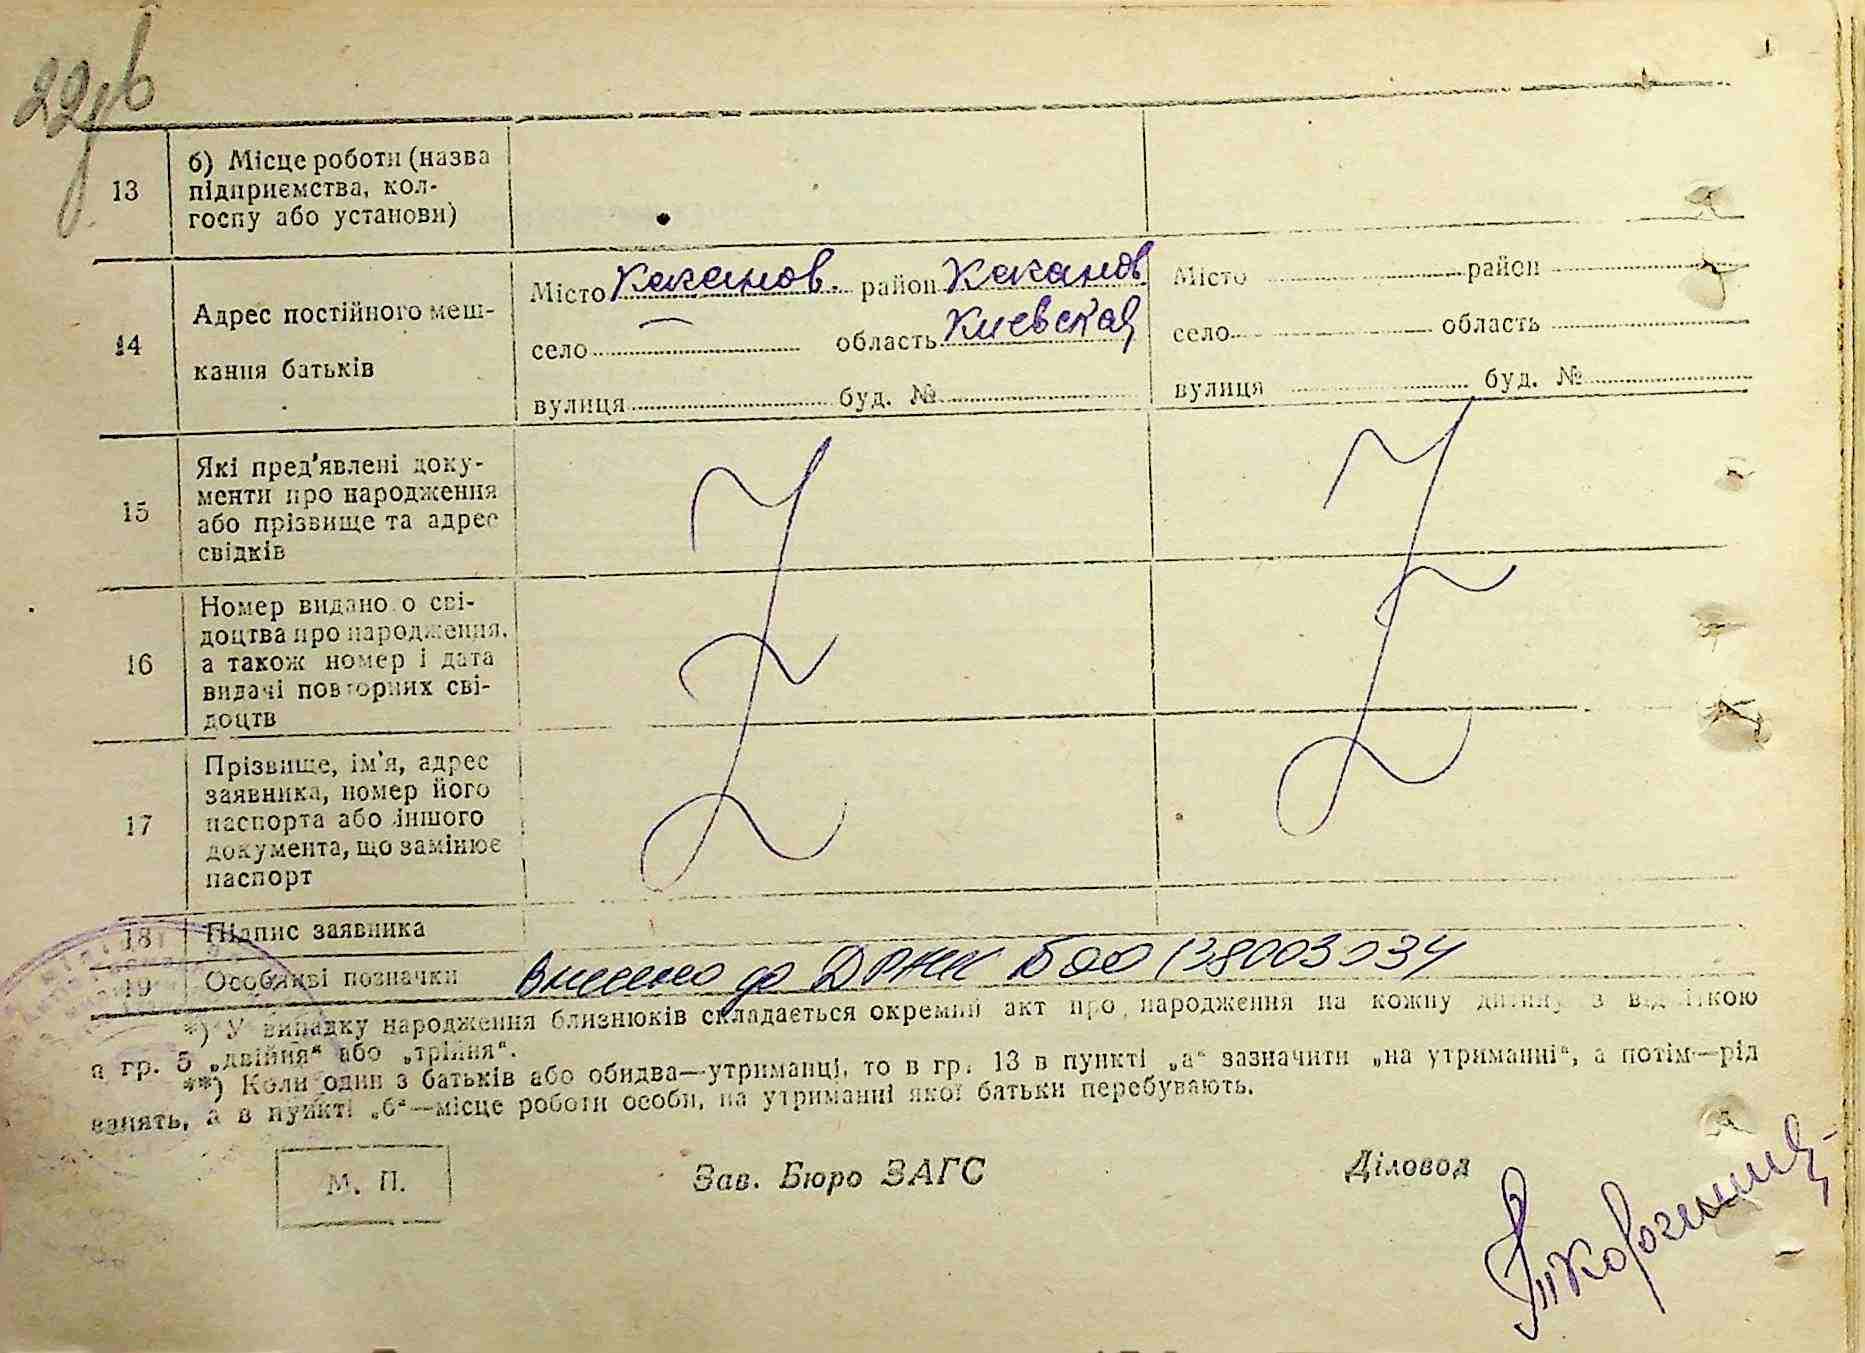 13
б) Місце роботи (назва
підприємства, кол-
госпу або установи)
14
Адрес постійного меш-
кання батьків
Місто Каганов. район Каганов.
село — область Киевская
вулиця буд. №
Місто район
село область
вулиця буд. №
15
Які пред'явлені доку-
менти про народження
або прізвище та адрес
свідків
16
Номер видано о сві-
доцтва про народження,
а також номер і дата
видачі повторних сві-
доцтв
17
Прізвище, ім'я, адрес
заявника, номер його
паспорта або іншого
документа, що замінює
паспорт
18 Підпис заявника
19 Особливі позначки Внесено до ДРАЦС 00138003034
*) У випадку народження близнюків складається окремий акт про народження на кожну дитину з відміткою
а гр. 5 „двійня“ або „трійня“.
**) Коли один з батьків або обидва—утриманці, то в гр. 13 в пункті „а“ зазначити „на утриманні“, а потім—рід
занять, а в пункті „б“—місце роботи особи, на утриманні якої батьки перебувають.
М. П.
Зав. Бюро ЗАГС
Діловод